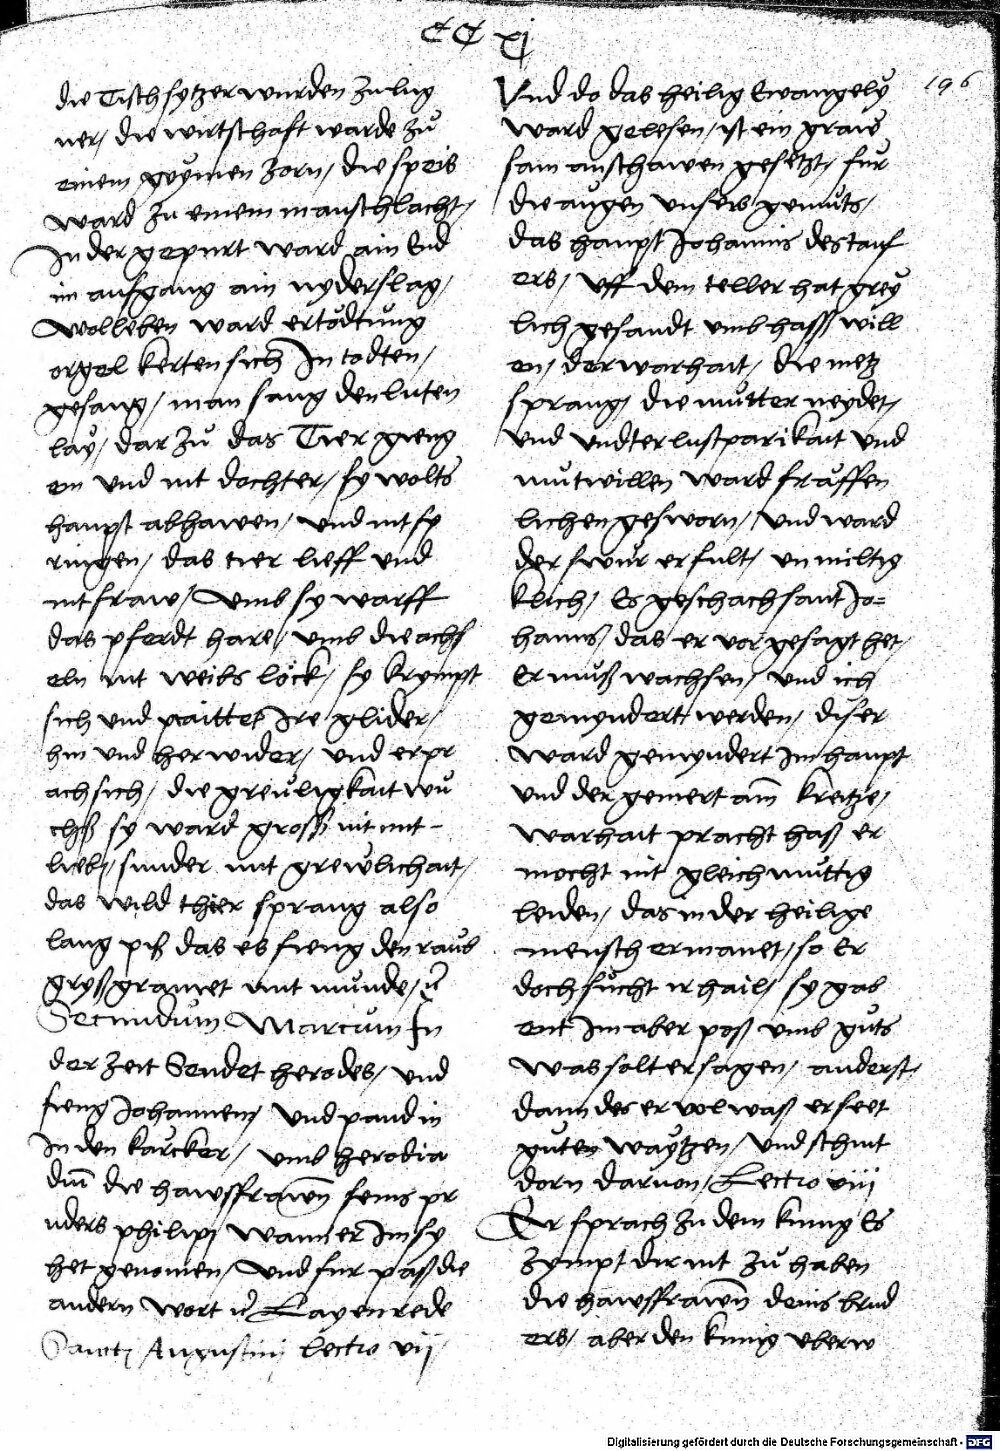 CC xj
196
die Tischsytzer wurden zu lug
ner/ die wirtschaft warde zů
einem grymen zorn/ die speis
ward zu einem manschlacht/
In der gepurt ward ain End
im aufgang ain nyderslag/
Wolleben ward ertödtung
orgel kerten sich In todten/
gesang/ man sang den luten
lay/ dar zů das Tier gieng
ein und nit dochter/ sy wolts
haupt abhawen/ und nit sp
ringen/ das tier lieff und
nit fraw/ Umb sy warff
das pferdt hare/ umb die achs
eln nit weibs löck/ sy krympt
sich und Ire glider/
hin und her wider/ und erpr
ach sich/ die greuligkait wů
chß sy ward groß nit mit
lieb/ sunder mit grewlichait/
das wild thier sprang also
lang piß das es fieng den raub
gryßgramet mit munde/
Secundum Marcum In
der zeit Sendet herodes/ und
fieng Johannem/ Und pand in
In den kärcker/ umb herodia
die hawsfrawen seins pr
uders philipi wann er Im sy
het genomen/ Und fur paß die
andern wort Layenrede
Sancti Augustini lectio vij
Und do das heilig Ewangely
ward gelesen/ ist ein graws
sam anschawen gesetzt/ fur
die augen unsers gemuts/
das haupt Johannis des tauf
ers/ uff dem teller hat grey
lich gesandt umb hass will
en/ der warhait/ die metz
sprang/ die mutter neydet/
und undter lustparikait und
mutwillen ward fräffen
lichen gesworn/ Und ward
der swur erfult/ unmiltig
klich/ Es geschach sant Jo=
hannß/ das er vor gesagt het/
Er muß wachsen/ und ich
gemyndert werden/ diser
ward gemyndert Im haupt
und der gemert am kreitze/
warhait pracht haß er
mocht nit gleichmuttig
leiden/ das in der heilige
mensch ermanet/ so Er
doch sucht ir hail/ sy gab
ent Im aber poß umb guts
was solt er sagen/ anderst/
dann des er vol waß er seet
guten waytzen/ Und schnit
dorn daruon/ Lectio viij
Er sprach zu dem kunig Es
zympt dir nit zů haben
die hawsfrawen deins brud
ers/ aber den kunig uberw
Digitalisierung gefördert durch die Deutsche Forschungsgemeinschaft - DFG